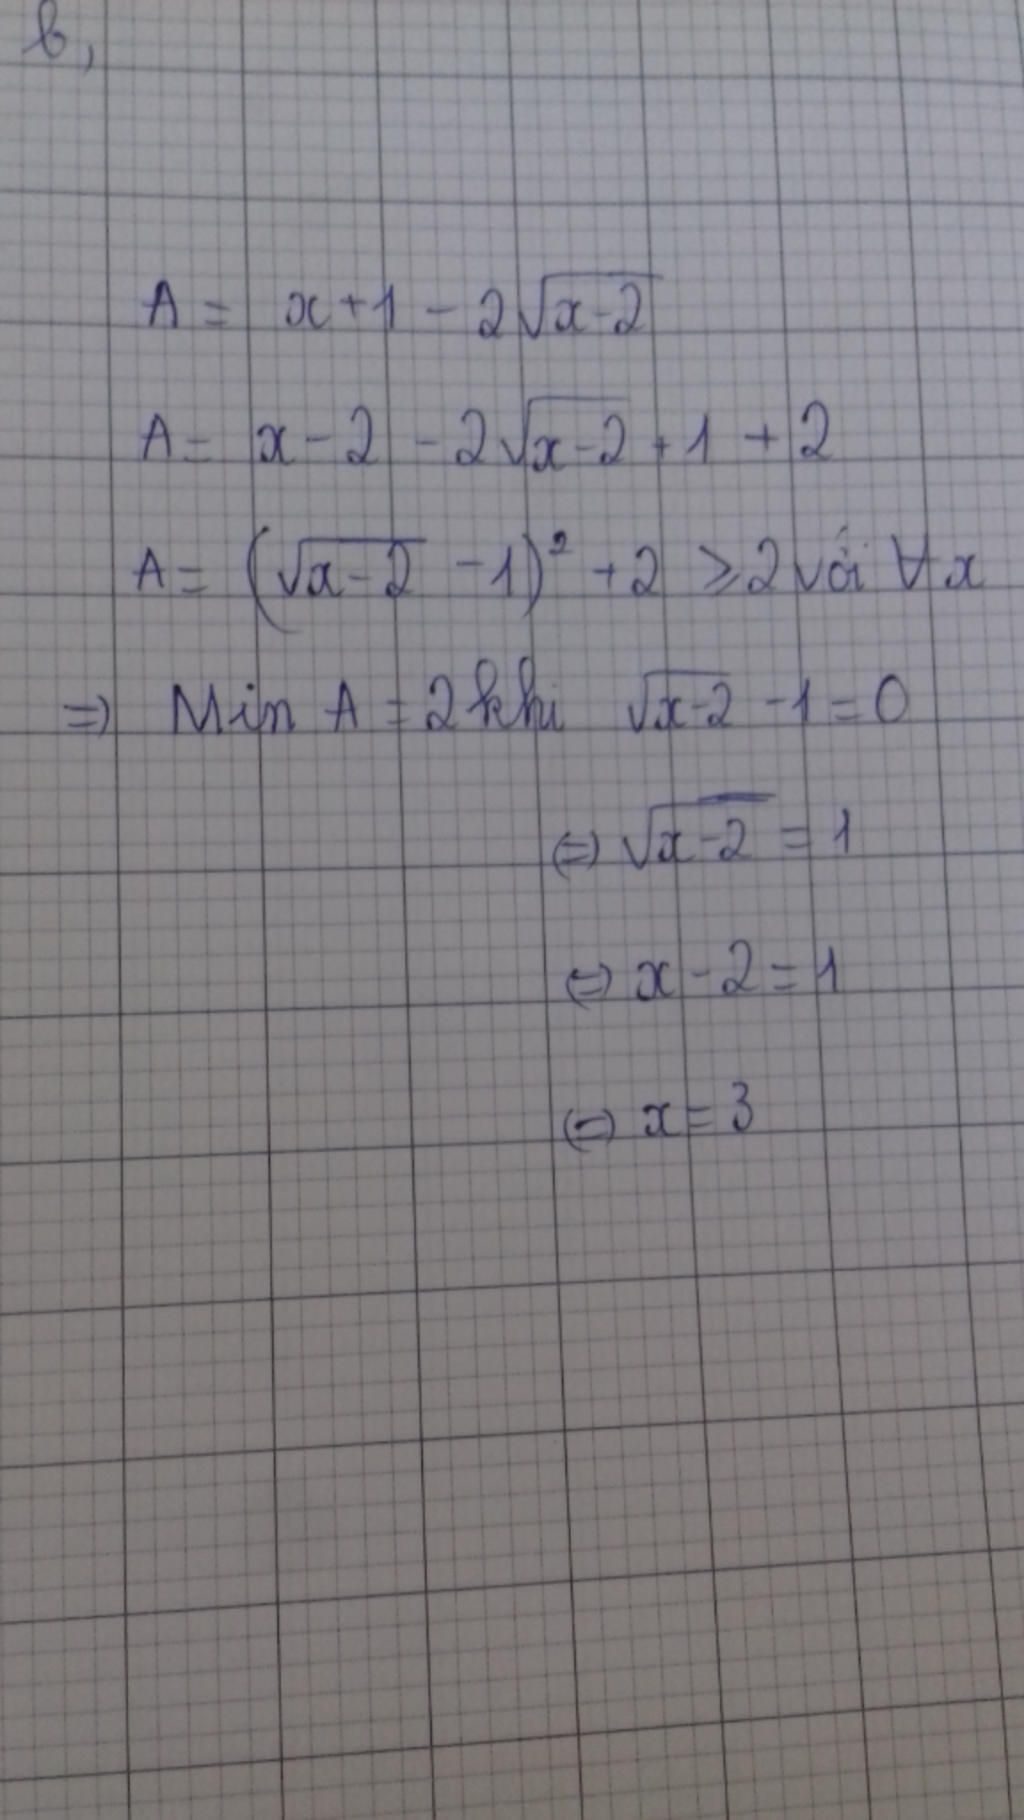 b,
A = x+1 - 2√(x-2)
A = x-2 - 2√(x-2) + 1 + 2
A = (√(x-2) - 1)² + 2 ≥ 2 với ∀x
=) Min A = 2 khi √(x-2) - 1 = 0
(=) √(x-2) = 1
(=) x - 2 = 1
(=) x = 3